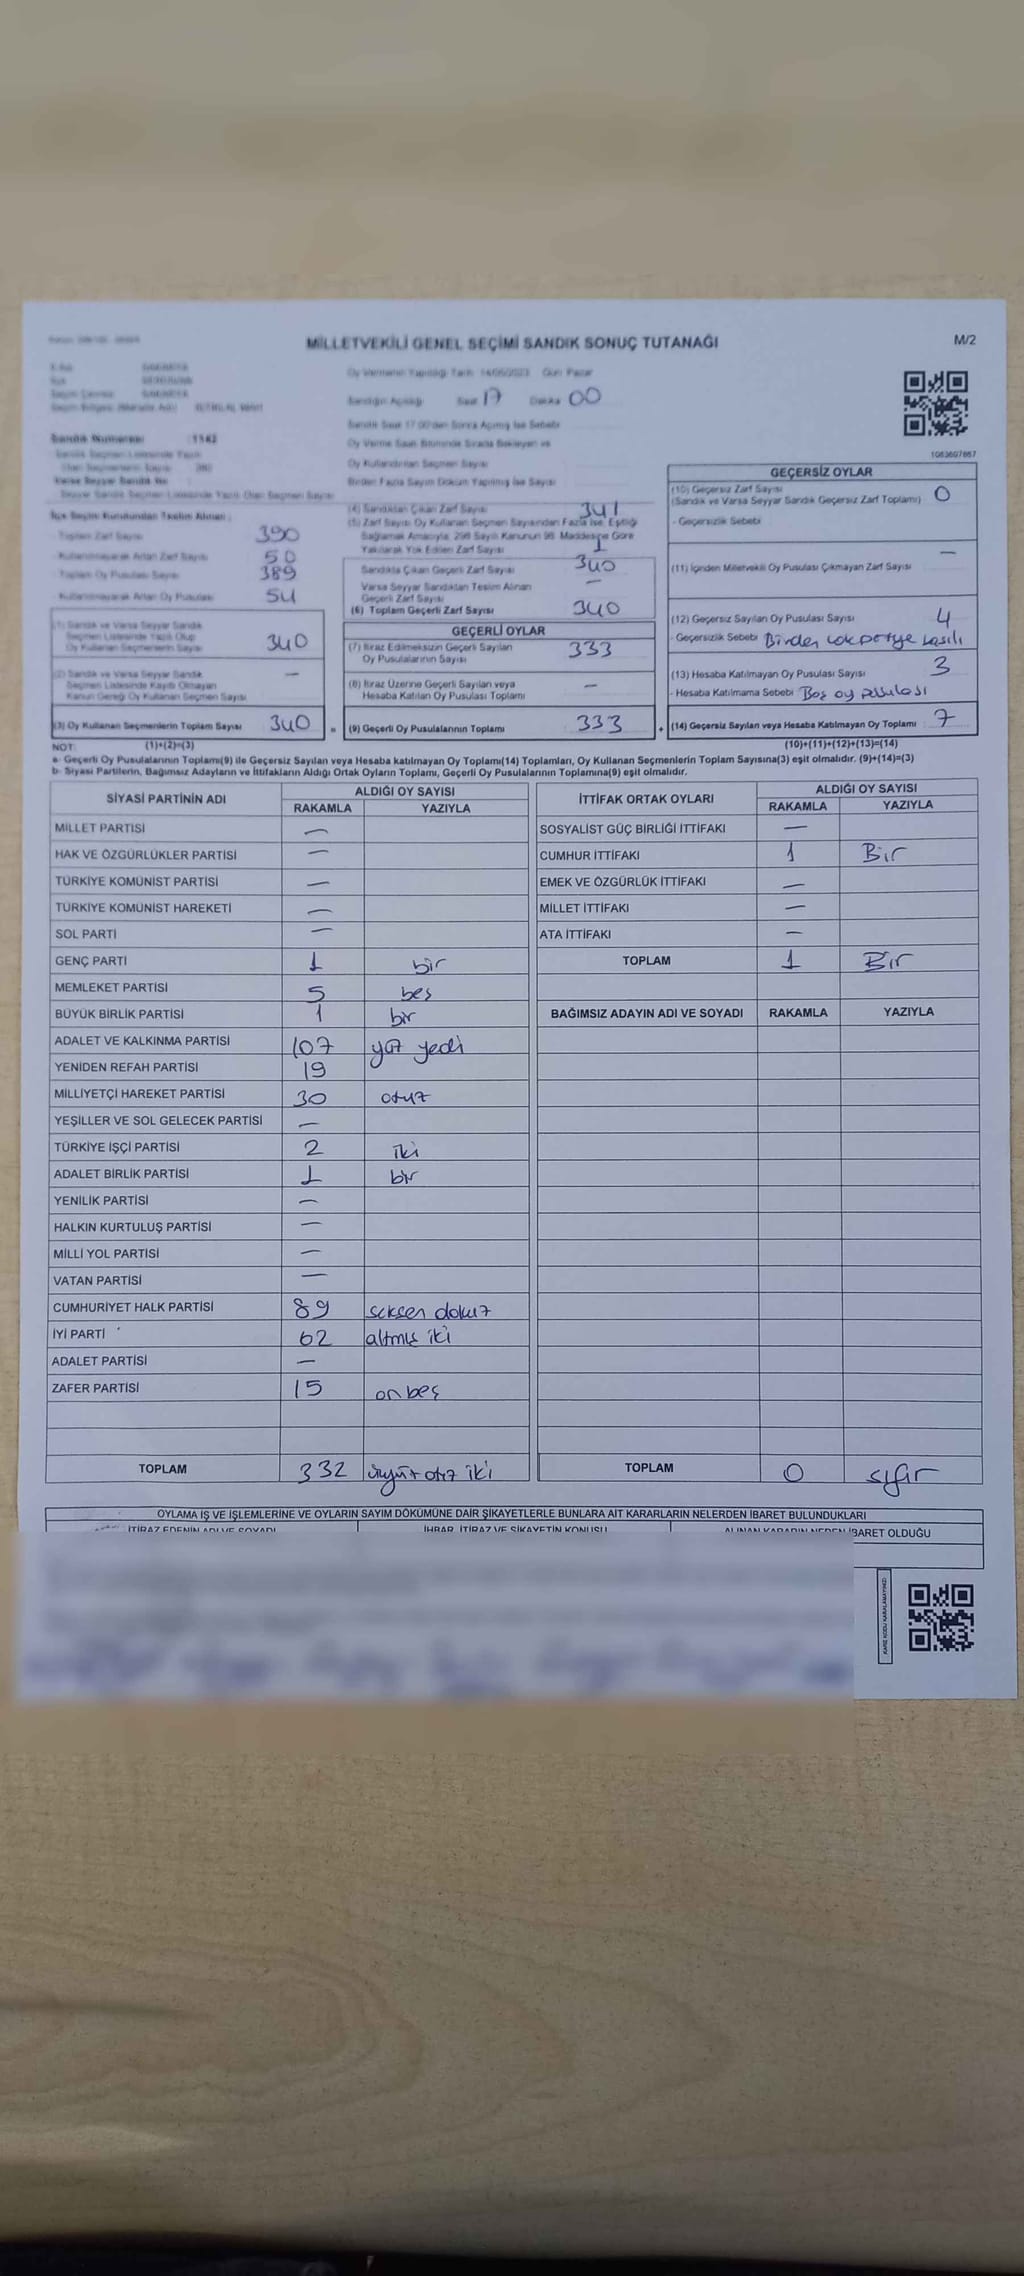 MİLLETVEKİLİ GENEL SEÇİMİ SANDIK SONUÇ TUTANAĞI
M/2
Oy Vermenin Yapıldığı Tarih 14/05/2023 Gün Pazar
Sandığın Açıldığı Saat 17 Dakika 00
Sandık Saat 17.00'den Sonra Açılmış İse Sebebi
Oy Verme Saati Bitiminde Sırada Bekleyen ve
Oy Kullandırılan Seçmen Sayısı
Birden Fazla Sayım Döküm Yapılmış İse Sayısı
Sandık Numarası : 1142
1083607667
İlçe Seçim Kurulundan Teslim Alınan :
Toplam Zarf Sayısı 390
Kullanılmayarak Artan Zarf Sayısı 50
Toplam Oy Pusulası Sayısı 389
Kullanılmayarak Artan Oy Pusulası 54
(1) Sandık ve Varsa Seyyar Sandık
Seçmen Listesinde Yazılı Olup
Oy Kullanan Seçmenlerin Sayısı 340
(2) Sandık ve Varsa Seyyar Sandık
Seçmen Listesinde Kayıtlı Olmayan
Kanun Gereği Oy Kullanan Seçmen Sayısı —
(3) Oy Kullanan Seçmenlerin Toplam Sayısı 340
(4) Sandıktan Çıkan Zarf Sayısı 341
(5) Zarf Sayısı Oy Kullanan Seçmen Sayısından Fazla ise, Eşitliği
Sağlamak Amacıyla, 298 Sayılı Kanunun 98. Maddesine Göre
Yakılarak Yok Edilen Zarf Sayısı 1
Sandıkta Çıkan Geçerli Zarf Sayısı 340
Varsa Seyyar Sandıktan Teslim Alınan
Geçerli Zarf Sayısı —
(6) Toplam Geçerli Zarf Sayısı 340
GEÇERLİ OYLAR
(7) İtiraz Edilmeksizin Geçerli Sayılan
Oy Pusulalarının Sayısı 333
(8) İtiraz Üzerine Geçerli Sayılan veya
Hesaba Katılan Oy Pusulası Toplamı —
= (9) Geçerli Oy Pusulalarının Toplamı 333
GEÇERSİZ OYLAR
(10) Geçersiz Zarf Sayısı
(Sandık ve Varsa Seyyar Sandık Geçersiz Zarf Toplamı) 0
- Geçersizlik Sebebi
(11) İçinden Milletvekili Oy Pusulası Çıkmayan Zarf Sayısı —
(12) Geçersiz Sayılan Oy Pusulası Sayısı 4
- Geçersizlik Sebebi Birden çok partiye basılı
(13) Hesaba Katılmayan Oy Pusulası Sayısı 3
- Hesaba Katılmama Sebebi Boş oy pusulası
+ (14) Geçersiz Sayılan veya Hesaba Katılmayan Oy Toplamı 7
NOT: (1)+(2)=(3) (10)+(11)+(12)+(13)=(14)
a- Geçerli Oy Pusulalarının Toplamı(9) ile Geçersiz Sayılan veya Hesaba katılmayan Oy Toplamı(14) Toplamları, Oy Kullanan Seçmenlerin Toplam Sayısına(3) eşit olmalıdır. (9)+(14)=(3)
b- Siyasi Partilerin, Bağımsız Adayların ve İttifakların Aldığı Ortak Oyların Toplamı, Geçerli Oy Pusulalarının Toplamına(9) eşit olmalıdır.
SİYASİ PARTİNİN ADI ALDIĞI OY SAYISI
RAKAMLA YAZIYLA
MİLLET PARTİSİ —
HAK VE ÖZGÜRLÜKLER PARTİSİ —
TÜRKİYE KOMÜNİST PARTİSİ —
TÜRKİYE KOMÜNİST HAREKETİ —
SOL PARTİ —
GENÇ PARTİ 1 bir
MEMLEKET PARTİSİ 5 beş
BÜYÜK BİRLİK PARTİSİ 1 bir
ADALET VE KALKINMA PARTİSİ 107 yüz yedi
YENİDEN REFAH PARTİSİ 19
MİLLİYETÇİ HAREKET PARTİSİ 30 otuz
YEŞİLLER VE SOL GELECEK PARTİSİ —
TÜRKİYE İŞÇİ PARTİSİ 2 iki
ADALET BİRLİK PARTİSİ 1 bir
YENİLİK PARTİSİ —
HALKIN KURTULUŞ PARTİSİ —
MİLLİ YOL PARTİSİ —
VATAN PARTİSİ —
CUMHURİYET HALK PARTİSİ 89 seksen dokuz
İYİ PARTİ 62 altmış iki
ADALET PARTİSİ —
ZAFER PARTİSİ 15 on beş
TOPLAM 332 üçyüz otuz iki
İTTİFAK ORTAK OYLARI ALDIĞI OY SAYISI
RAKAMLA YAZIYLA
SOSYALİST GÜÇ BİRLİĞİ İTTİFAKI —
CUMHUR İTTİFAKI 1 Bir
EMEK VE ÖZGÜRLÜK İTTİFAKI —
MİLLET İTTİFAKI —
ATA İTTİFAKI —
TOPLAM 1 Bir
BAĞIMSIZ ADAYIN ADI VE SOYADI RAKAMLA YAZIYLA
TOPLAM 0 sıfır
OYLAMA İŞ VE İŞLEMLERİNE VE OYLARIN SAYIM DÖKÜMÜNE DAİR ŞİKAYETLERLE BUNLARA AİT KARARLARIN NELERDEN İBARET BULUNDUKLARI
İTİRAZ EDENİN ADI VE SOYADI İHBAR, İTİRAZ VE ŞİKAYETİN KONUSU ALINAN KARARIN NEDEN İBARET OLDUĞU
KARE KODU KARALAMAYINIZ!